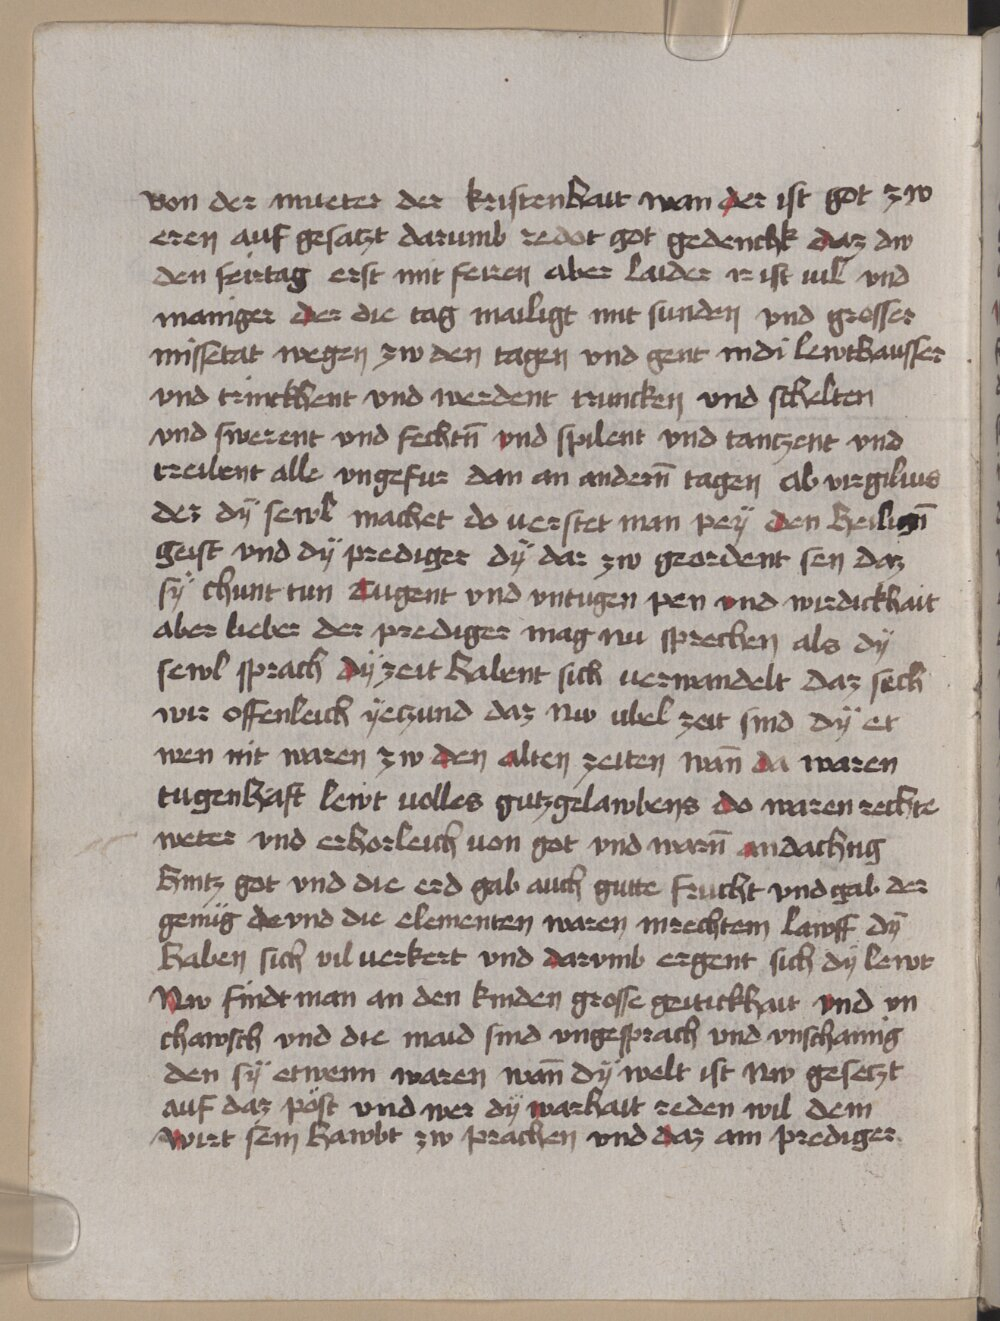 von der mueter der kristenhait wan der ist got zw
eren auf gesatzt darumb redot got gedenckh daz dw
den feirtag erst mit feiren aber laider ir ist uil und
maniger der die tag mailigt mit sunden vnd grosser
missetat wegen zw den tagen vnd gent indi lewthausser
vnd trinckhent vnd werdent truncken vnd schelten
vnd swerent vnd fechtn̄ vnd spilent vnd tantzent vnd
treibent alle vngefur dan an andern̄ tagen ab virgilius
der dÿ sewl machet do uerstet man peÿ den heilign̄
geist vnd dÿ prediger dÿ dar zw geordent sen daz
sÿ chunt tun Tugent vnd vntugen pen vnd wirdickhait
aber lieber der prediger mag nu sprechen als dÿ
sewl sprach dÿ zeit habent sich uerwandelt daz sech
wir offenleich ÿetzund daz Nw ubel zeit sind dÿ et
wen nit waren zw den alten zeiten wan̄ da waren
tugenhaft lewt uolles gutzgelawbens do waren rechte
weter vnd erhorleich von got vnd warn̄ andachtig
hintz got vnd die erd gab auch gutte frucht vnd gab der
genüg de vnd die elementen waren inrechtem lawff dÿ
haben sich vil uerkert vnd darvmb ergent sich dÿ lewt
Nw findt man an den kinden grosse geitickhait vnd vn
chawsch vnd die maid sind vngesprach vnd vnschamig
den sÿ etwenn waren wan̄ dÿ welt ist Nw gesetzt
auf daz pöst vnd wer dÿ warhait reden wil dem
wirt sein hawbt zw prachen vnd daz am prediger